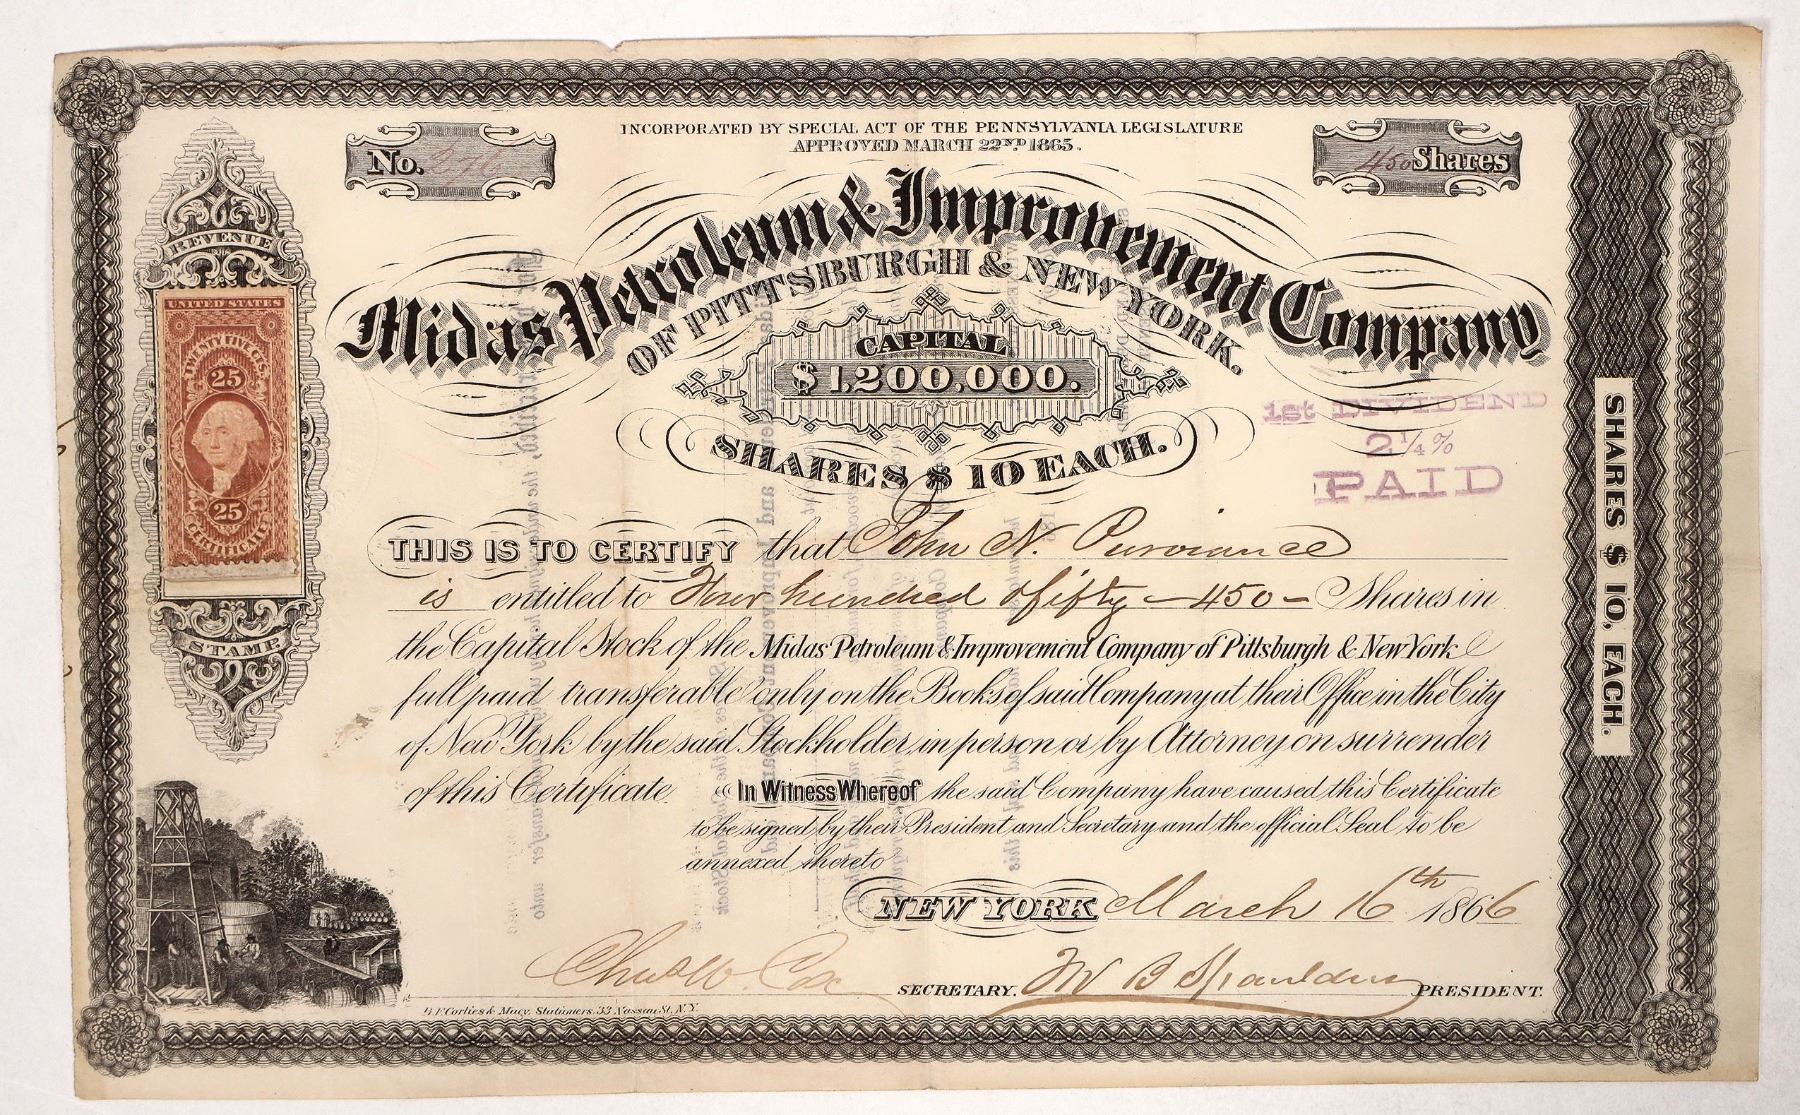 INCORPORATED BY SPECIAL ACT OF THE PENNSYLVANIA LEGISLATURE
APPROVED MARCH 22ND 1865.
No. 276
450 Shares
Midas Petroleum & Improvement Company
OF PITTSBURGH & NEW YORK.
CAPITAL
$1,200,000.
SHARES $10 EACH.
1st DIVIDEND
2 1/4 %
PAID
REVENUE
UNITED STATES
TWENTY FIVE CTS.
25
25
CERTIFICATE
STAMP
THIS IS TO CERTIFY that John N. Purviance
is entitled to Four hundred & fifty — 450 — Shares in
the Capital Stock of the Midas Petroleum & Improvement Company of Pittsburgh & New York
full paid transferable only on the Books of said Company at their Office in the City
of New York by the said Stockholder in person or by Attorney on surrender
of this Certificate. In Witness Whereof the said Company have caused this Certificate
to be signed by their President and Secretary and the official Seal to be
annexed thereto
NEW YORK March 16th 1866
Chas W. Cox SECRETARY. W B Spaulding PRESIDENT.
Corlies & Macy, Stationers. 33 Nassau St. N.Y.
SHARES $10, EACH.